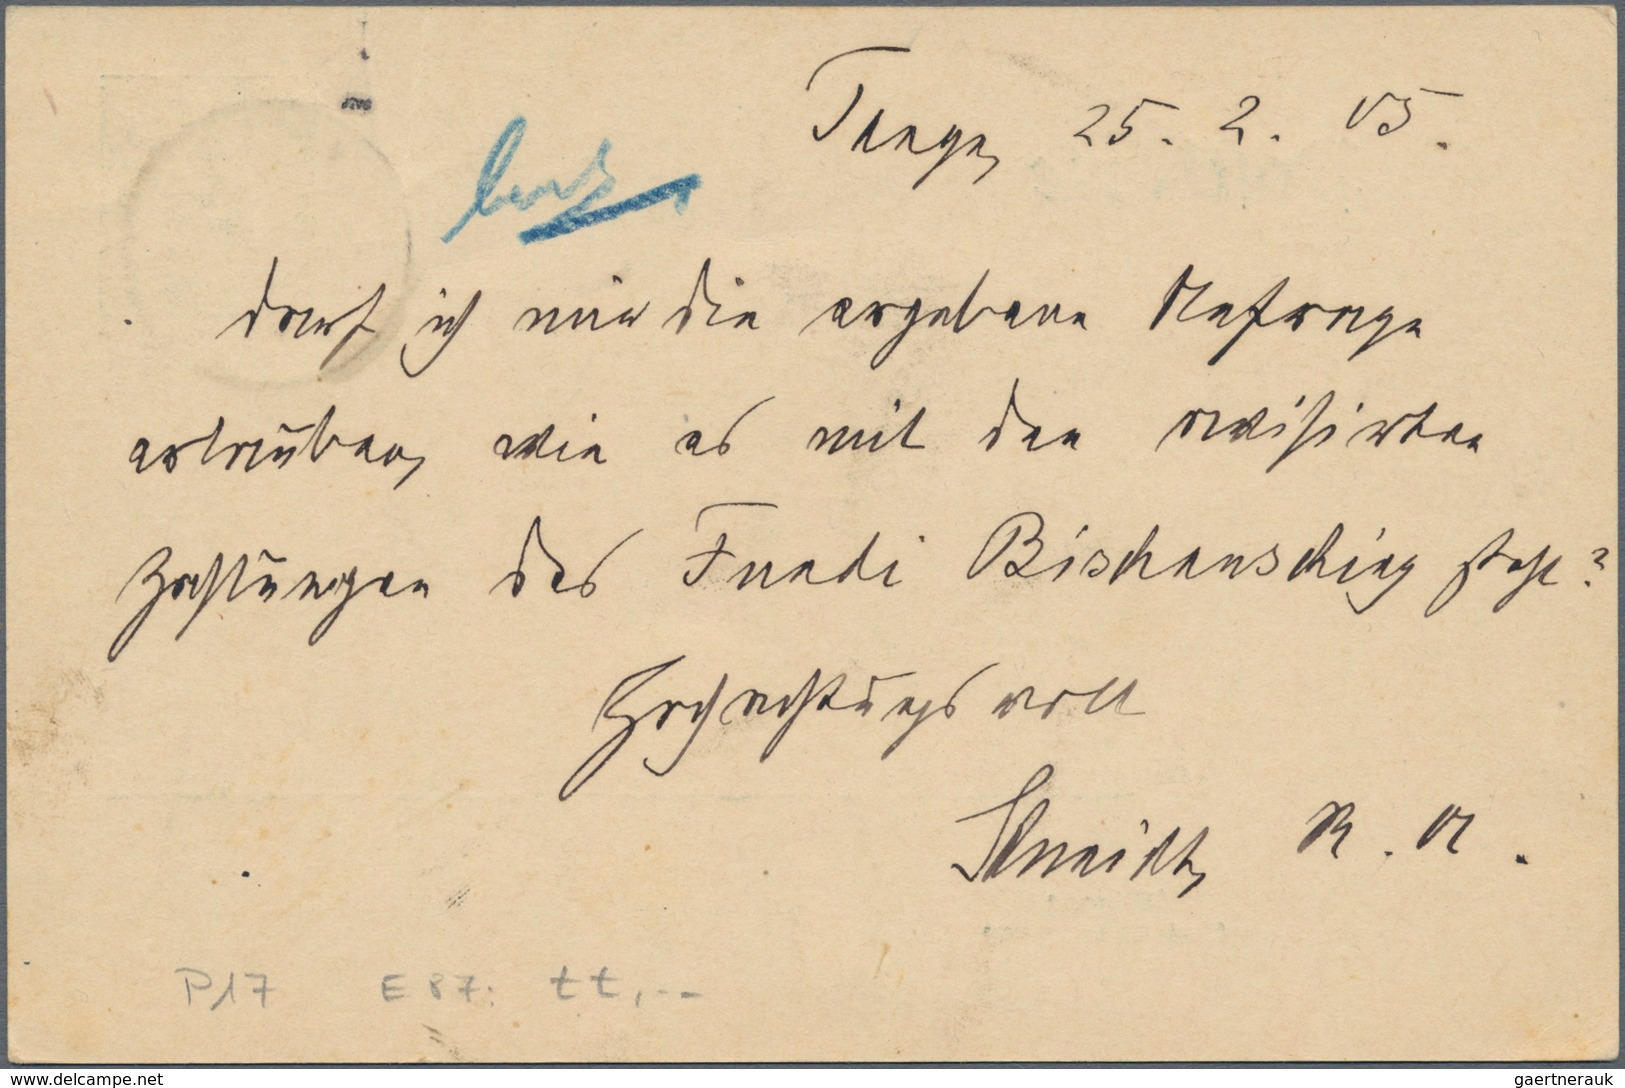 Tanga, 25. 2. 05.
Darf ich mir die ergebene Anfrage
erlauben, wie es mit den revisirten
Zahlungen des Fundi Bischensching steht?
Hochachtungsvoll
Schmidt, R. A.
P17 E87: tt,--
www.delcampe.net
gaertnerauk